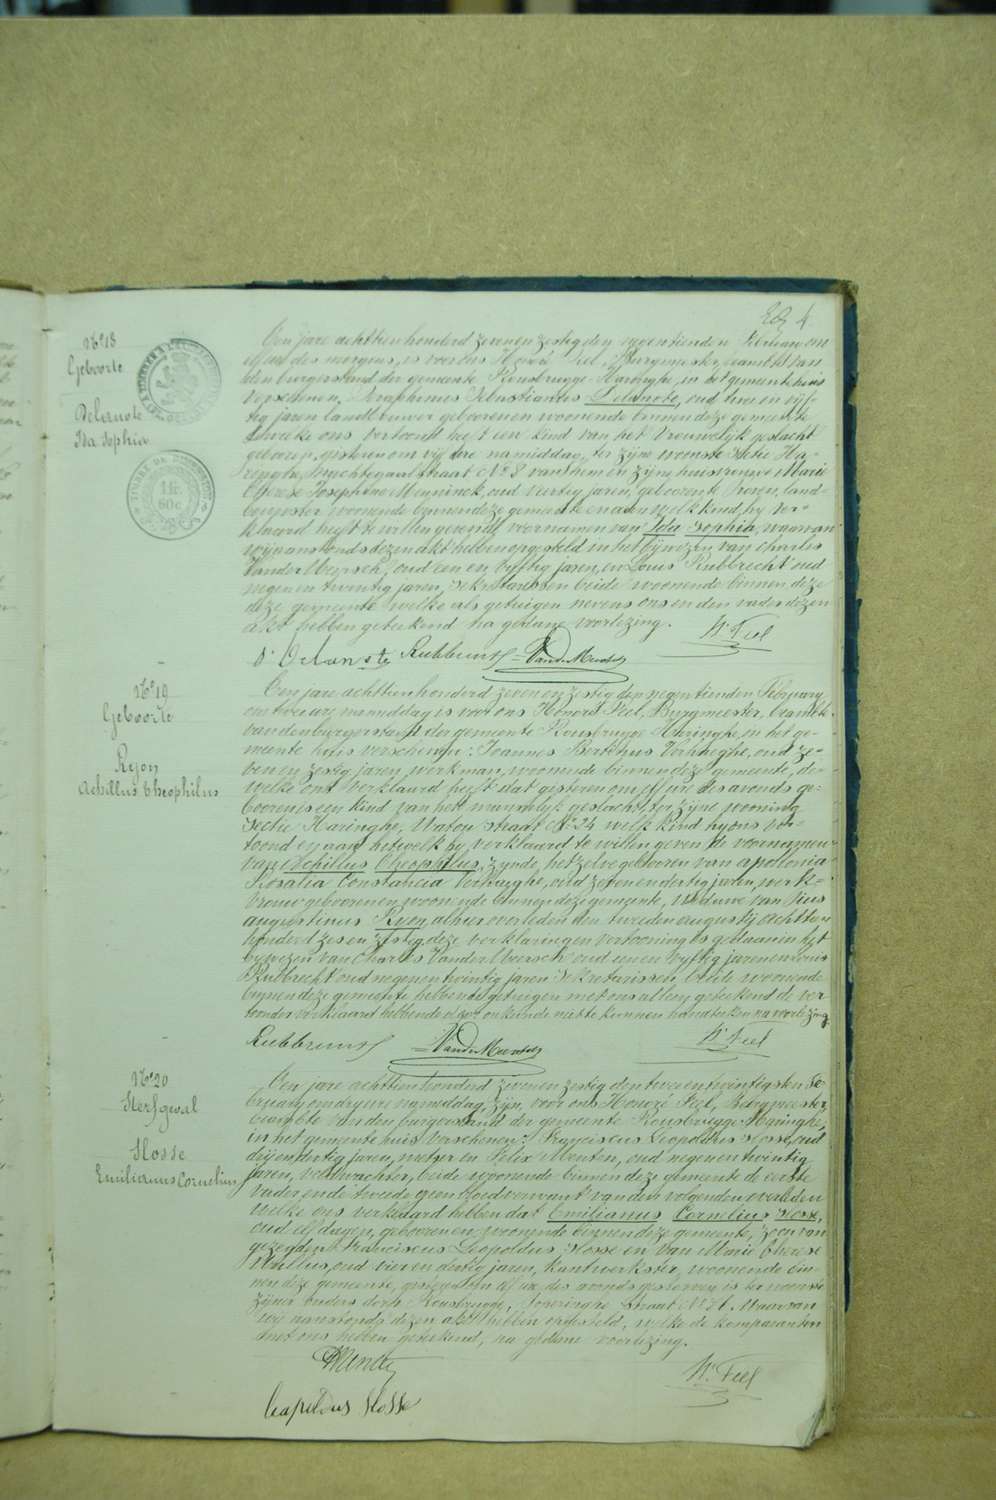 4
N° 18
Geboorte
Delanote
Ida Sophia
TIMBRE DE DIMENSION
1 fr.
60 c.
Een jare achttien honderd zeven en zestig den negentienden Februari om
elf ure des morgens, is voor ons Honoré Feel, Burgmeester, beambte van
den burgerstand der gemeente Rousbrugge-Haringhe, in het gemeentehuis
verschenen. Seraphinus Sebastianus Delanote, oud twee en vijf-
tig jaren landbouwer geboren en woonende binnen deze gemeente
dewelke ons vertoond heeft een kind van het vrouwelijk geslacht
geboren, gisteren om vijf ure namiddag, ter zijne woonste sectie Ha-
ringhe, straat N° 8 van hem en zijne huisvrouwe Marie
Therese Josephine Meyninck, oud veertig jaren, geboren te Proven, land-
bouwster, woonende binnen deze gemeente en aan welk kind hij ver-
klaard heeft te willen geven de voornamen van Ida Sophia, waarvan
wij aanstonds dezen akt hebben opgesteld in het bijwezen van Charles
Vander Meersch, oud een en vyftig jaren, en Louis Rubbrecht oud
negen en twintig jaren, Sekretarissen beide woonende binnen deze
deze gemeente welke als getuigen nevens ons en den vader dezen
akt hebben geteekend na gedane voorlezing.
H. Feel
S. Delanote Rubbrecht VanderMeersch
N° 19
Geboorte
Ryon
Achillus Theophilus
Een jare achttien honderd zeven en zestig den negentienden February
om twee ure namiddag is voor ons Honoré Feel, Burgmeester, beambte
van den burgerstand der gemeente Rousbrugge Haringhe, in het ge-
meente huis verschenen: Joannes Bertinus Verhaeghe, oud ze-
ven en zestig jaren, werkman, woonende binnen deze gemeente, de-
welke ons verklaard heeft dat gisteren om elf ure des avonds ge-
boren is een kind van het mannelijk geslacht, ter zijne wooning
sectie Haringhe, Watou straat N° 24 welk kind hy ons ver-
toond en aan hetwelk hy verklaard te willen geven de voornamen
van Achillus Theophilus, zynde hetzelve geboren van Apollonia
Rosalia Constancia Verhaeghe, oud zeven en dertig jaren, werk-
vrouw geboren en woonende binnen deze gemeente, Weduwe van Pius
Augustinus Ryon, alhier overleden den tweeden augusty achttien
honderd zes en zestig deze verklaringen vertooning is gedaan in het
bywezen van Charles VanderMeersch oud een en vyftig jaren en Louis
Rubbrecht oud negen en twintig jaren Sekretarissen beide woonende
binnen deze gemeente hebbende getuigen met ons alleen geteekend de ver
tooner verklaard hebbende noch handteeken na voorlezing
Rubbrecht VanderMeersch H. Feel
N° 20
Sterfgeval
Slosse
Emilianus Cornelius
Een jare achttien honderd zeven en zestig den twee en twintigsten Fe-
bruary om dry ure namiddag, zijn, voor ons Honoré Feel, Burgmeester,
beambte van den burgerstand der gemeente Rousbrugge-Haringhe,
in het gemeente huis verschenen: Franciscus Leopoldus Slosse, oud
drij en dertig jaren, metser en Felix Menten, oud negen en twintig
jaren, veldwachter, beide woonende binnen deze gemeente de eerste
vader en de tweede geen bloedverwant van den volgenden overleden
welke ons verklaard hebben dat Emilianus Cornelius Slosse,
oud elf dagen, geboren en woonende binnen deze gemeente, zoon van
gezegden Franciscus Leopoldus Slosse en van Marie Therese
oud vier en dertig jaren, kantwerkster, woonende bin-
nen deze gemeente, gisteren om elf ure des avonds gestorven is ter woonste
zijner ouders sectie Rousbrugge, straat N° 71. Waarvan
wij aanstonds dezen akt hebben opgesteld, welke de komparanten
met ons hebben geteekend, na gedane voorlezing.
Menten H. Feel
Leopoldus Slosse